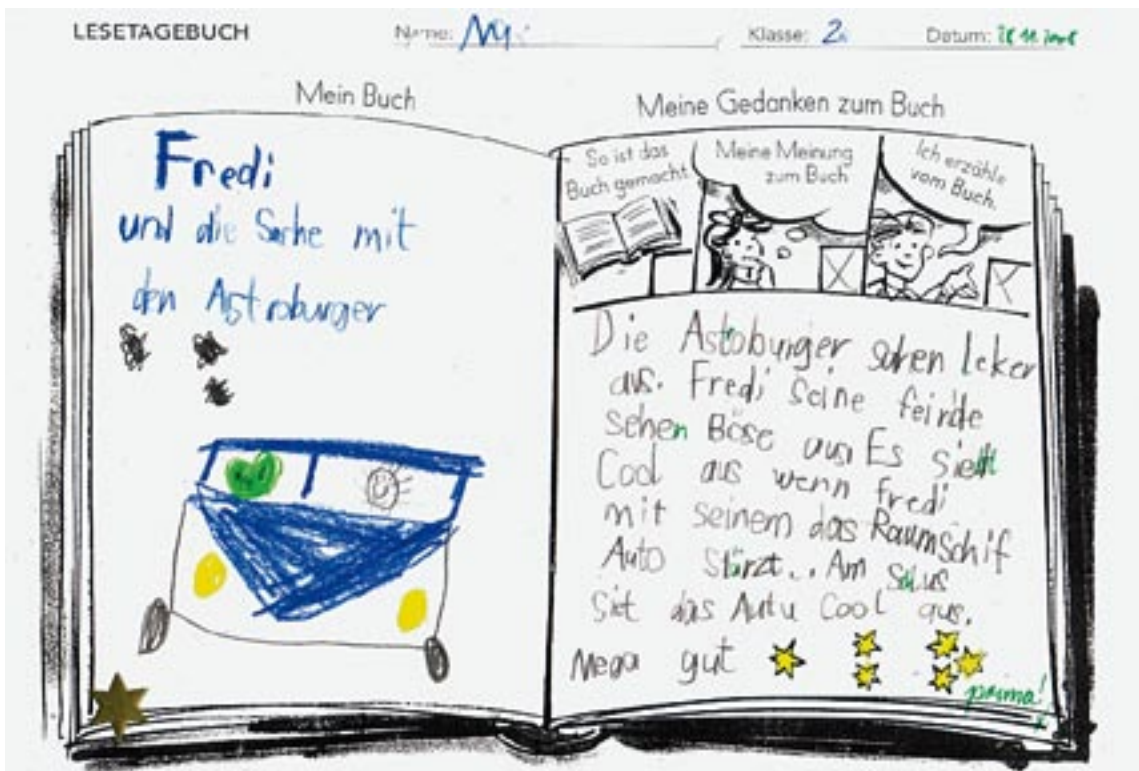 LESETAGEBUCH
Name:
Klasse: 2a
Datum:
Mein Buch
Fredi
und die Sache mit
den Astroburger
Meine Gedanken zum Buch
So ist das
Buch gemacht
Meine Meinung
zum Buch
Ich erzähle
vom Buch.
Die Astoburger sehen leker
aus. Fredi seine feinde
sehen Böse aus Es sieht
Cool aus wenn fredi
mit seinem das Raumschif
Auto stürzt.. Am
Siet das Auto Cool aus.
Mega gut
prima!